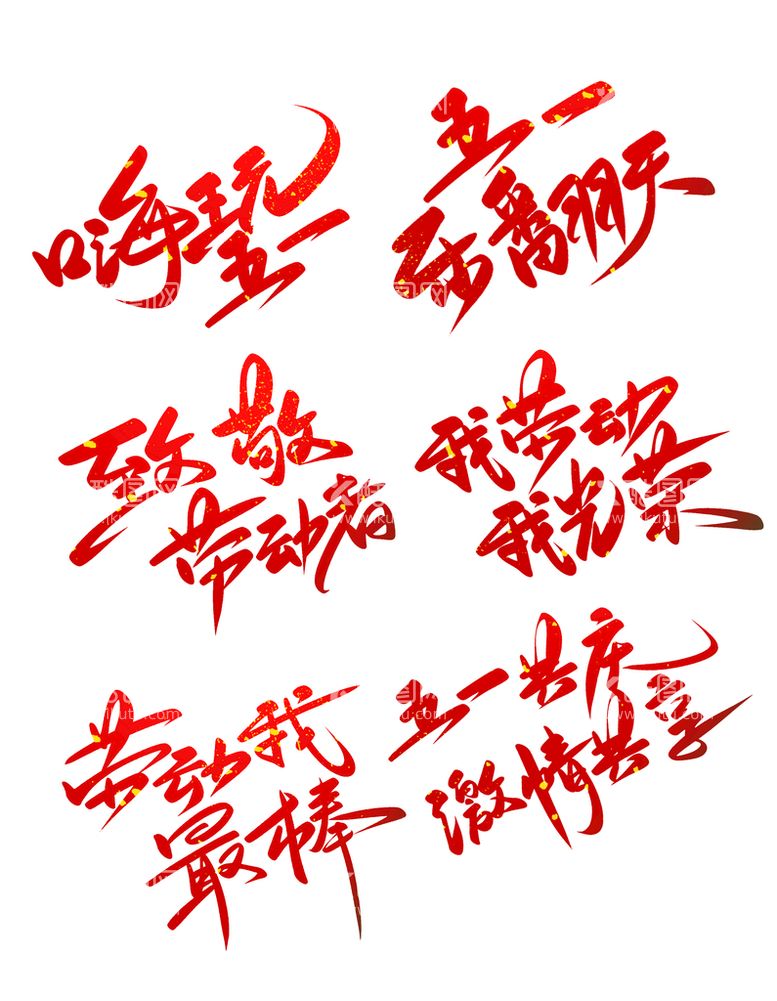 嗨玩
五一
五一
致翻天
致敬
劳动者
我劳动
我光荣
劳动我
最棒
五一共庆
激情共享